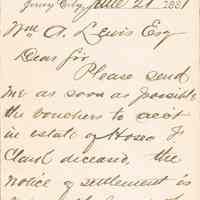 Jersey City, June 21 1881
Wm A. Lewis Esq
Dear Sir
Please send
me as soon as possible
the vouchers to acct
in estate of Hosea F
Clark deceased. the
notice of settlement is